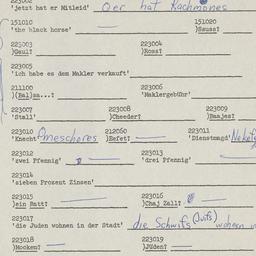 'jetzt hat er Mitleid' Der hat Rachmones
151010 151020
'the black horse' )Hsuss?
225003 223004
)Gaul? )Ross?
223005
'ich habe es dem Makler verkauft'
211100 223006
)(Bal)sm...? 'Maklergebühr'
223007 223008 223009
'Stall' )Cheeder? )Baajes?
223010 212060 223011
'Knecht' Omeschores )Eefet? 'Dienstmagd'
223012 223013
'zwei Pfennig' 'drei Pfennig'
223014
'sieben Prozent Zinsen'
223015 223016
)ein Batt? )Chaj Zall?
223017
'die Juden wohnen in der Stadt' die Schwifs (Jufs) wohnen
223018 223019
)Hocken? )Jüden?